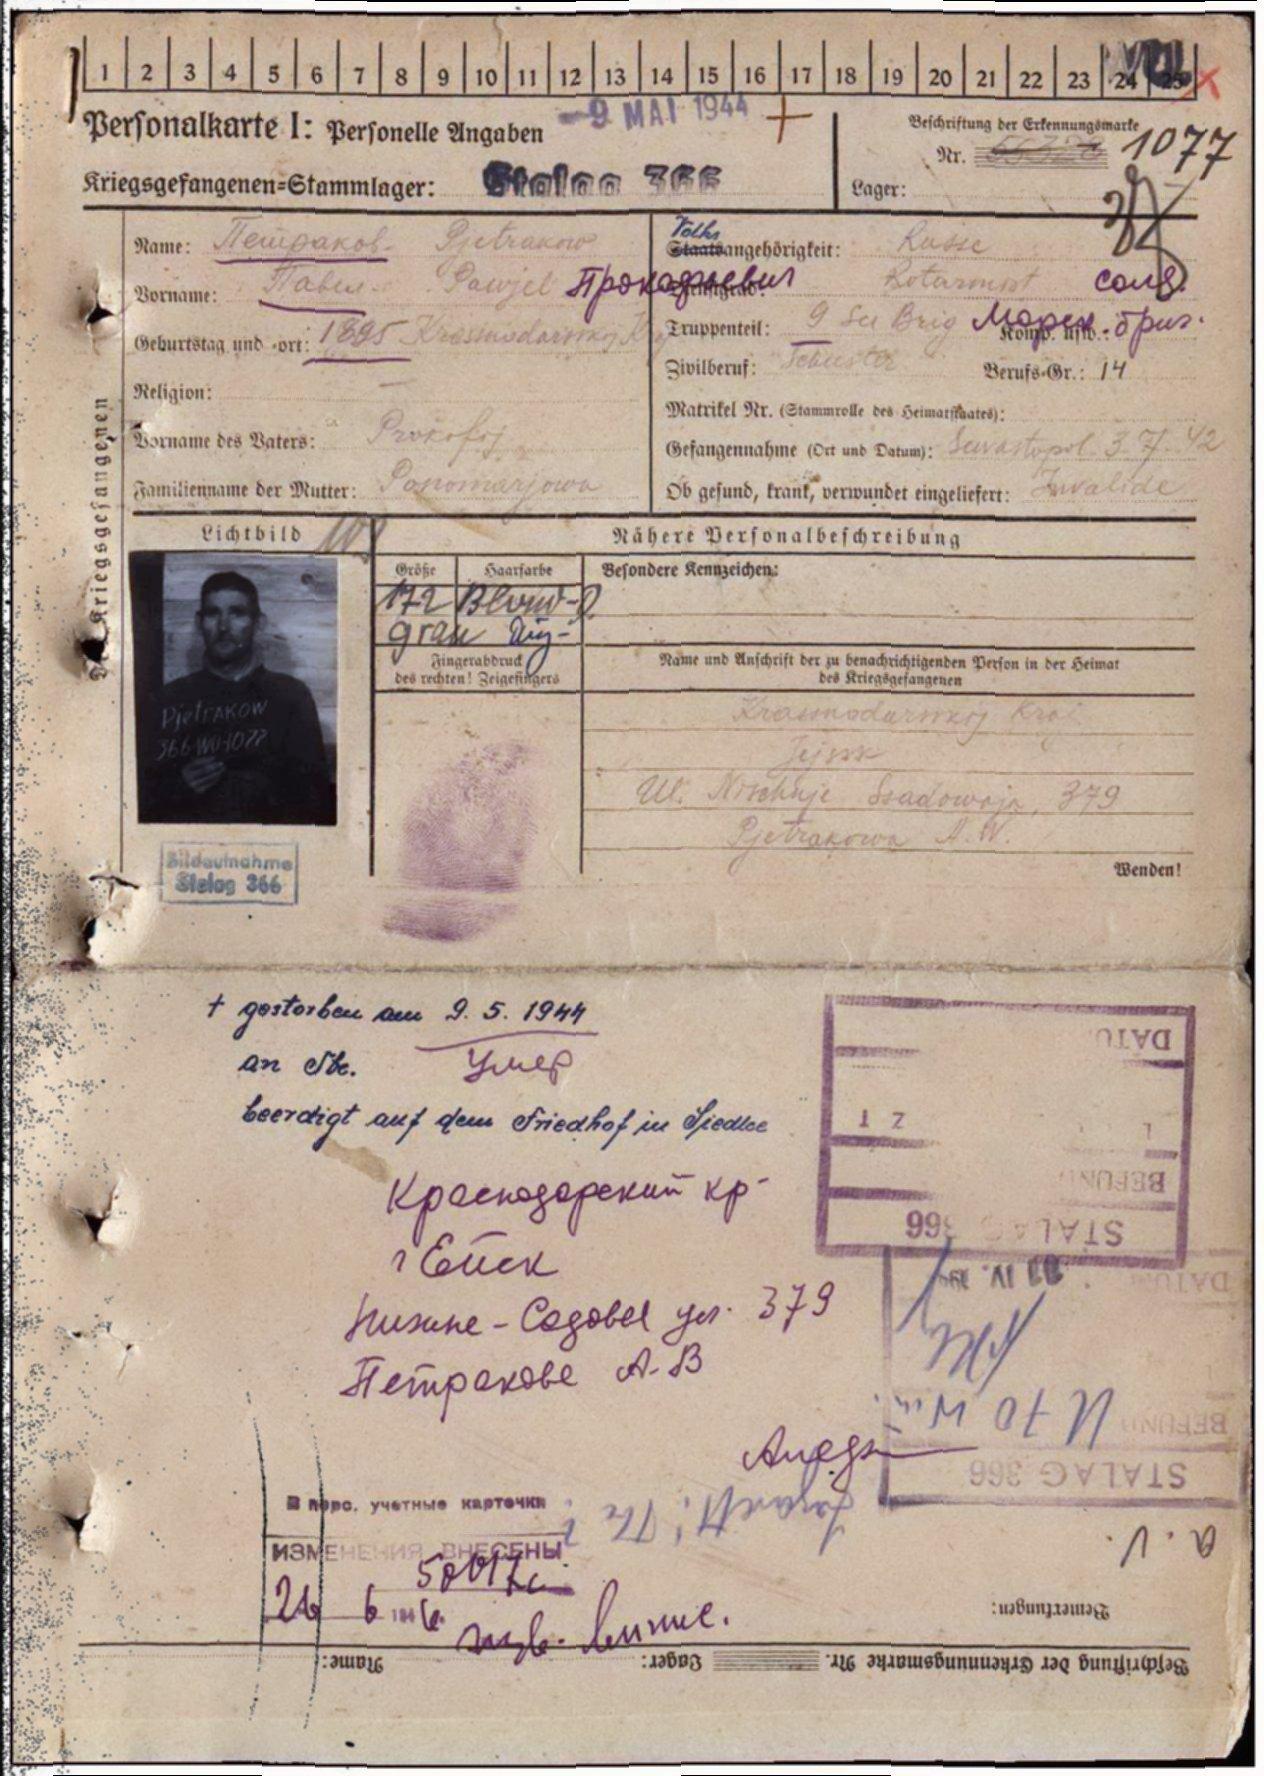 1 2 3 4 5 6 7 8 9 10 11 12 13 14 15 16 17 18 19 20 21 22 23 24 25
Personalkarte I: Personelle Angaben
-9 MAI 1944 +
Beschriftung der Erkennungsmarke
Nr. 1077
Kriegsgefangenen-Stammlager: Stalag 366
Lager:
Des Kriegsgefangenen
Name: Петраков Pjetrakow
Vorname: Павел Pawjel Прокофьевич
Geburtstag und -ort: 1895 Krasnodarskoj Kraj
Religion: —
Vorname des Vaters: Prokofij
Familienname der Mutter: Ponomarjowa
Volks
Staatsangehörigkeit: Russe
Dienstgrad: Rotarmist солд.
Truppenteil: 9 See Brig Морск. бриг.
Komp. usw.:
Zivilberuf: Schuster Berufs-Gr.: 14
Matrikel Nr. (Stammrolle des Heimatstaates):
Gefangennahme (Ort und Datum): Sewastopol 3.7.42
Ob gesund, krank, verwundet eingeliefert: Invalide
Lichtbild
Nähere Personalbeschreibung
Größe Haarfarbe Besondere Kennzeichen:
172 Blond-
grau
Fingerabdruck
des rechten! Zeigefingers
Name und Anschrift der zu benachrichtigenden Person in der Heimat
des Kriegsgefangenen
Krasnodarskoj Kraj
Jejssk
Ul. Nischnje Ssadowaja, 379
Pjetrakowa A. W.
Wenden!
PjetrAKOW
366 WO 1077
Bildaufnahme
Stalag 366
+ gestorben am 9. 5. 1944
an Tbc. Умер
beerdigt auf dem Friedhof in Siedlce
Краснодарский кр-
г Ейск
Нижне-Садовая ул. 379
Петракова А-В
STALAG 366
BEFUND
DATUM
STALAG 366
BEFUND
DATUM
11 IV. 194
В перс. учетные карточки
ИЗМЕНЕНИЯ ВНЕСЕНЫ
26 6 194
a. V.
Bemerkungen:
Beschriftung der Erkennungsmarke Nr. Lager: Name: